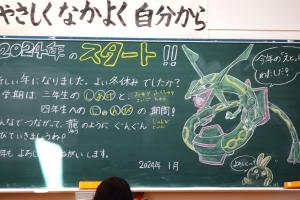 やさしくなかよく自分から
2024年のスタート!!
しい年になりました。よい冬休みでしたか?
学期は、三年生の
四年生への
の期間!
なでつながって、龍のように ぐんぐん
びていきましょうね。
年も よろしくおねがいします。
2024年 1月
今年の"えと"、
わたし!?
よろしく〜